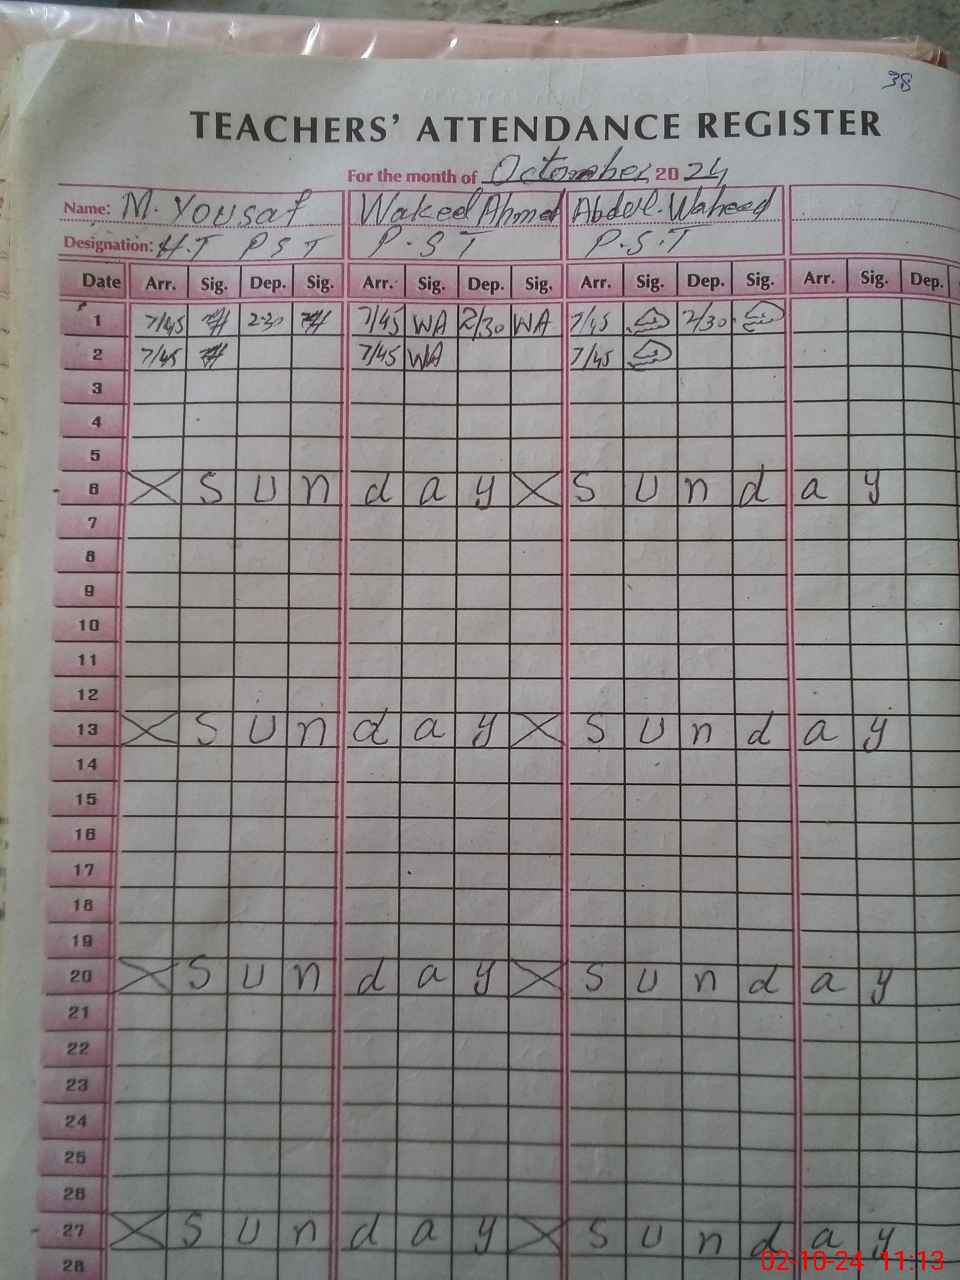 38
TEACHERS' ATTENDANCE REGISTER
For the month of Octomber 2024
Name: M. Yousaf Wakeel Ahmed Abdul. Waheed
Designation: H.T P S T P. S T P.S.T
Date Arr. Sig. Dep. Sig. Arr. Sig. Dep. Sig. Arr. Sig. Dep. Sig. Arr. Sig. Dep.
1 7/45 2-30 7/45 WA 2/30 WA 7/45 2/30
2 7/45 7/45 WA 7/45
3
4
5
6 S u n d a y S u n d a y
7
8
9
10
11
12
13 S u n d a y S u n d a y
14
15
16
17
18
19
20 S u n d a y S u n d a y
21
22
23
24
25
26
27 S u n d a y S u n d a y
28
02-10-24 11:13